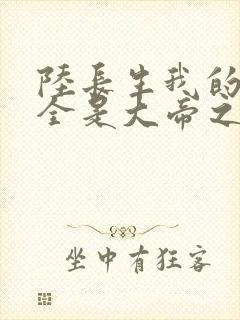 陸長生我的
全是大帝之
坐中有狂客